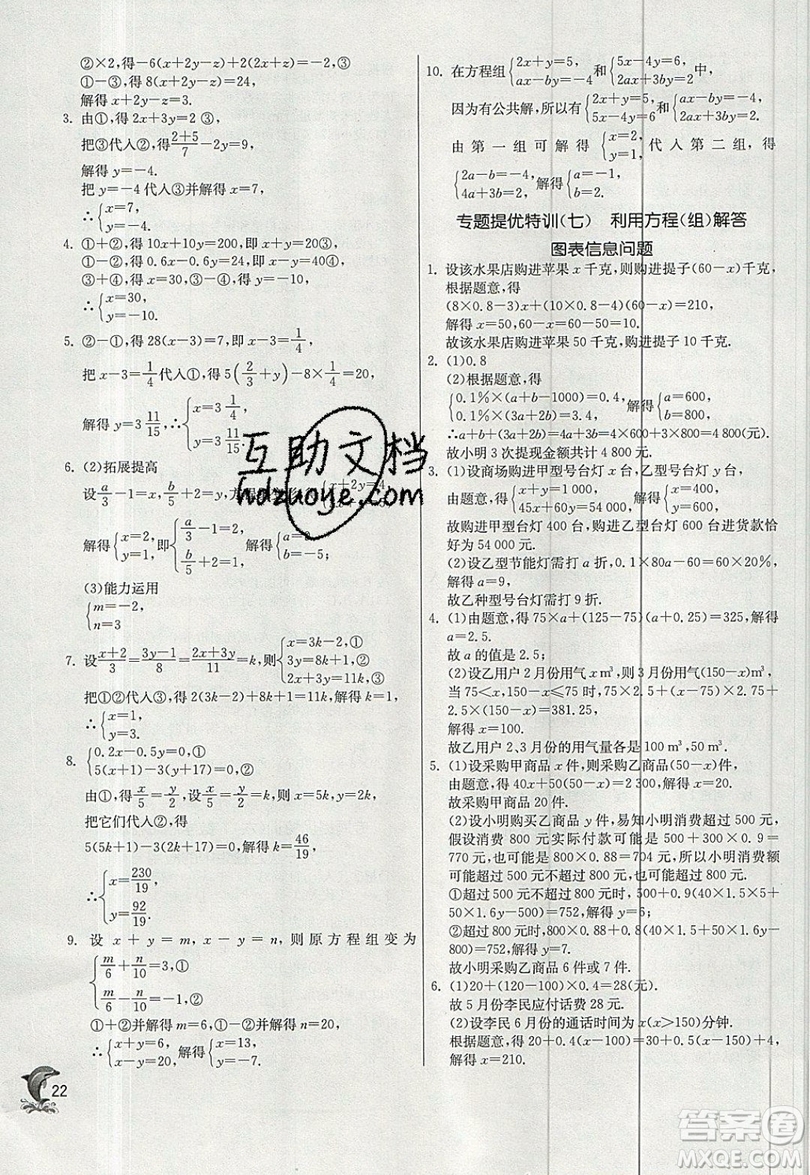 ②×2,得−6(x+2y−z)+2(2x+z)=−2,③
①−③,得 8(x+2y−z)=24,
解得 x+2y−z=3.
3. 由①,得 2x+3y=2 ③,
把③代人②,得(2+5)/7−2y=9,
解得 y=−4.
把 y=−4 代人③并解得 x=7,
∴{x=7,
y=−4.
4. ①+②,得 10x+10y=200,即 x+y=20,③
①−②,得 0.6x−0.6y=24,即 x−y=40,④
③+④,得 x=30,③−④,得 y=−10,
∴{x=30,
y=−10.
5. ②−①,得 28(x−3)=7,即 x−3=1/4,
把 x−3=1/4代人①,得 5(2/3+y)−8×1/4=20,
解得 y=3 11/15,∴{x=3 1/4,
y=3 11/15.
6. (2)拓展提高
设a/3−1=x,b/5+2=y,
x+2y=4,
解得{x=2,
y=1,即{a/3−1=2,
b/5+2=1,解得{a=9,
b=−5;
(3)能力运用
{m=−2,
n=3
7. 设(x+2)/3=(3y−1)/8=(2x+3y)/11=k,则{x=3k−2,①
3y=8k+1,②
2x+3y=11k,③
把①②代人③,得 2(3k−2)+8k+1=11k,解得 k=1,
∴{x=1,
y=3.
8. {0.2x−0.5y=0,①
5(x+1)−3(y+17)=0,②
由①,得x/5=y/2,设x/5=y/2=k,则 x=5k,y=2k,
把它们代人②,得
5(5k+1)−3(2k+17)=0,解得 k=46/19,
∴{x=230/19,
y=92/19.
9. 设 x+y=m,x−y=n,则原方程组变为
{m/6+n/10=3,①
m/6−n/10=−1,②
①+②并解得 m=6,①−②并解得 n=20,
∴{x+y=6,
x−y=20,解得{x=13,
y=−7.
22
10. 在方程组{2x+y=5,
ax−by=−4和{5x−4y=6,
2ax+3by=2中,
因为有公共解,所以有{2x+y=5,
5x−4y=6和{ax−by=−4,
2ax+3by=2.
由第一组可解得{x=2,
y=1,代人第二组,得
{2a−b=−4,
4a+3b=2,解得{a=−1,
b=2.
专题提优特训(七) 利用方程(组)解答
图表信息问题
1. 设该水果店购进苹果 x 千克,则购进提子(60−x)千克,
根据题意,得
(8×0.8−3)x+(10×0.8−4)(60−x)=210,
解得 x=50,60−x=60−50=10.
故该水果店购进苹果 50 千克,购进提子 10 千克.
2. (1)0.8
(2)根据题意,得
{0.1%×(a+b−1000)=0.4,
0.1%×(3a+2b)=3.4,解得{a=600,
b=800,
∴a+b+(3a+2b)=4a+3b=4×600+3×800=4800.
故小明 3 次提现金额共计 4 800 元.
3. (1)设商场购进甲型号台灯 x 台,乙型号台灯 y 台,
由题意,得{x+y=1000,
45x+60y=54000,解得{x=400,
y=600,
故购进甲型台灯 400 台,购进乙型台灯 600 台进货款恰
好为 54 000 元.
(2)设乙型节能灯需打 a 折,0.1×80a−60=60×20%,
解得 a=9,
故乙种型号台灯需打 9 折.
4. (1)由题意,得 75×a+(125−75)(a+0.25)=325,解得
a=2.5.
故 a 的值是 2.5;
(2)设乙用户 2 月份用气 x m³,则 3 月份用气(150−x)m³,
当 75<x,150−x≤75 时,2.5×75+(x−75)×2.75+
2.5×(150−x)=381.25,
解得 x=100.
故乙用户 2、3 月份的用气量各是 100 m³,50 m³.
5. (1)设采购甲商品 x 件,则采购乙商品(50−x)件,
由题意,得 40x+50(50−x)=2 300,解得 x=20.
故采购甲商品 20 件.
(2)设小明购买乙商品 y 件,易知小明打折超过 500 元,
假设消费 800 元实际付款可能是 500+300×0.9=
770 元,也可能是 800×0.88=704 元,所以小明消费额可
能超过 500 元不超过 800 元,也可能超过 800 元.
①超过 500 元不超过 800 元时,500+0.9(40×1.5×5+
1.5×50y−500)=752,解得 y=6,
②超过 800 元时,0.88(40×1.5×5+1.5×50y)=752,
解得 y=7.
故小明采购乙商品 6 件或 7 件.
6. (1)20+(120−100)×0.4=28(元).
故 5 月份李民应付话费 28 元.
(2)设李民 6 月份的通话时间为 x(x>150)分钟.
根据题意,得 20+0.4(x−100)−0.1(x−150)=0.28x,
解得 x=210.
互助文档
hdzuoye.com
答案圈
MXQE.COM